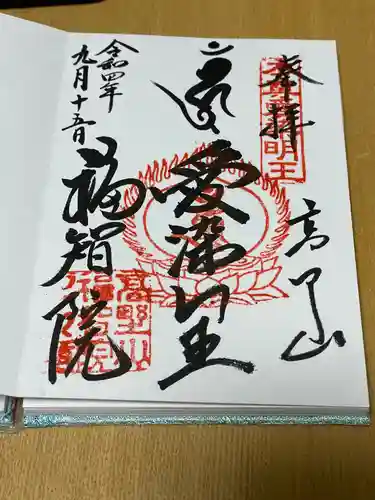 奉拝
高野山
愛染明王
福智院
令和四年
九月十五日
高野山
福智院